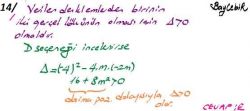 14/ Verilen denklemlerden birinin
iki gerçel kökünün olması için Δ>0
olmalıdır.
D seçeneği incelenirse
Δ=(-4)²-4.m.(-2m)
16+8m²>0
daima poz. dolayısıyla Δ>0
olur.
CEVAP: E